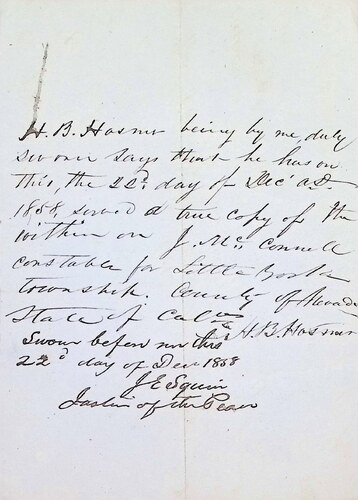 H. B. Hosmer being by me, duly
sworn says that he has on
this, the 22d day of Dec' A.D.
1858, served a true copy of the
within on J. McConnell
constable for Little York
township. County of Nevada
State of Cal
H. B. Hosmer
Sworn before me this
22d day of Dec 1858
J E Squire
Justice of the Peace